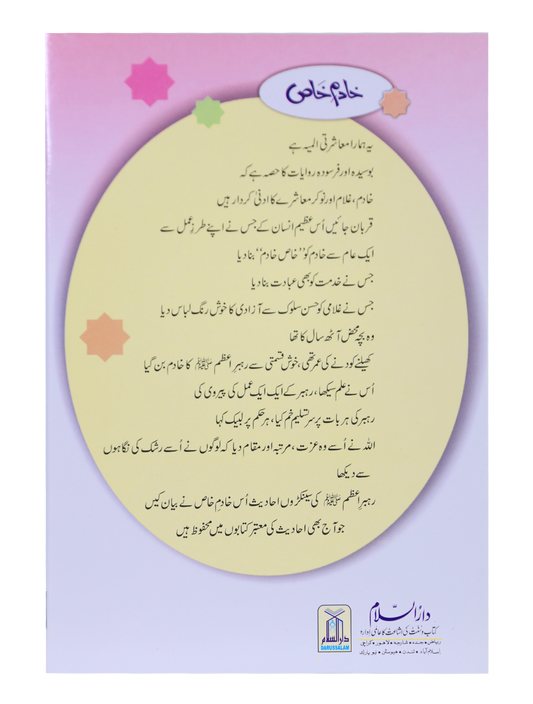 خادمِ خاص
یہ ہمارا معاشرتی المیہ ہے
بوسیدہ اور فرسودہ روایات کا حصہ ہے کہ
خادم، غلام اور نوکر معاشرے کا ادنیٰ کردار ہیں
قربان جائیں اُس عظیم انسان کے جس نے اپنے طرزِ عمل سے
ایک عام سے خادم کو ’’خاص خادم‘‘ بنا دیا
جس نے خدمت کو بھی عبادت بنا دیا
جس نے غلامی کو حسن سلوک سے آزادی کا خوش رنگ لباس دیا
وہ بچہ محض آٹھ سال کا تھا
کھیلنے کودنے کی عمر تھی، خوش قسمتی سے رہبرِ اعظم ﷺ کا خادم بن گیا
اُس نے علم سیکھا، رہبر کے ایک ایک عمل کی پیروی کی
رہبر کی ہر بات پر سر تسلیم خم کیا، ہر حکم پر لبیک کہا
اللہ نے اُسے وہ عزت، مرتبہ اور مقام دیا کہ لوگوں نے اُسے رشک کی نگاہوں
سے دیکھا
رہبرِ اعظم ﷺ کی سینکڑوں احادیث اُس خادمِ خاص نے بیان کیں
جو آج بھی احادیث کی معتبر کتابوں میں محفوظ ہیں
دارالسلام
کتاب و سنت کی اشاعت کا عالمی ادارہ
ریاض • جدہ • شارجہ • لاہور • کراچی
اسلام آباد • لندن • ہیوسٹن • نیو یارک
دارالسلام
DARUSSALAM